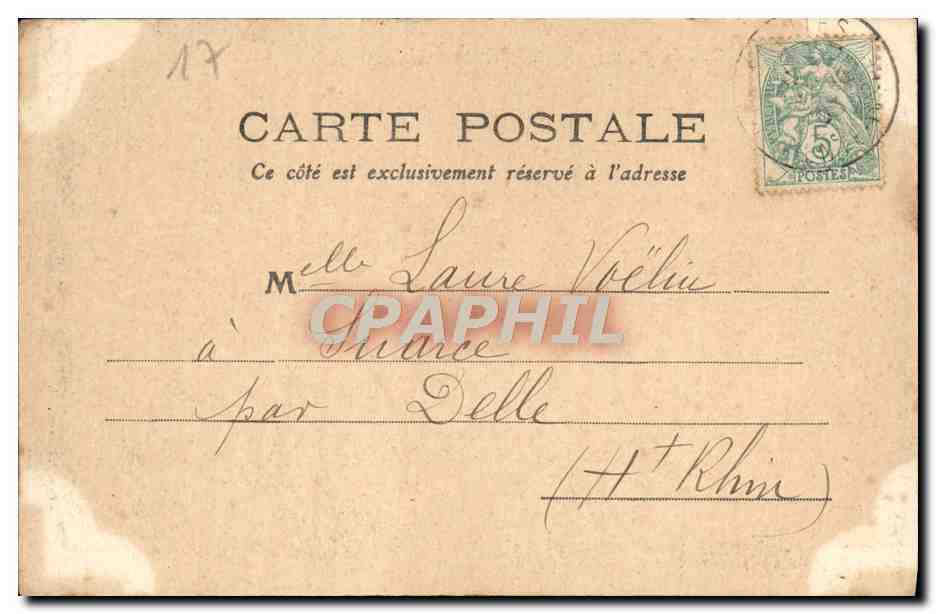 17
CARTE POSTALE
Ce côté est exclusivement réservé à l'adresse
POSTES
Melle Laure Voëlin
CPAPHIL
à Suarce
par Delle
(Ht Rhin)